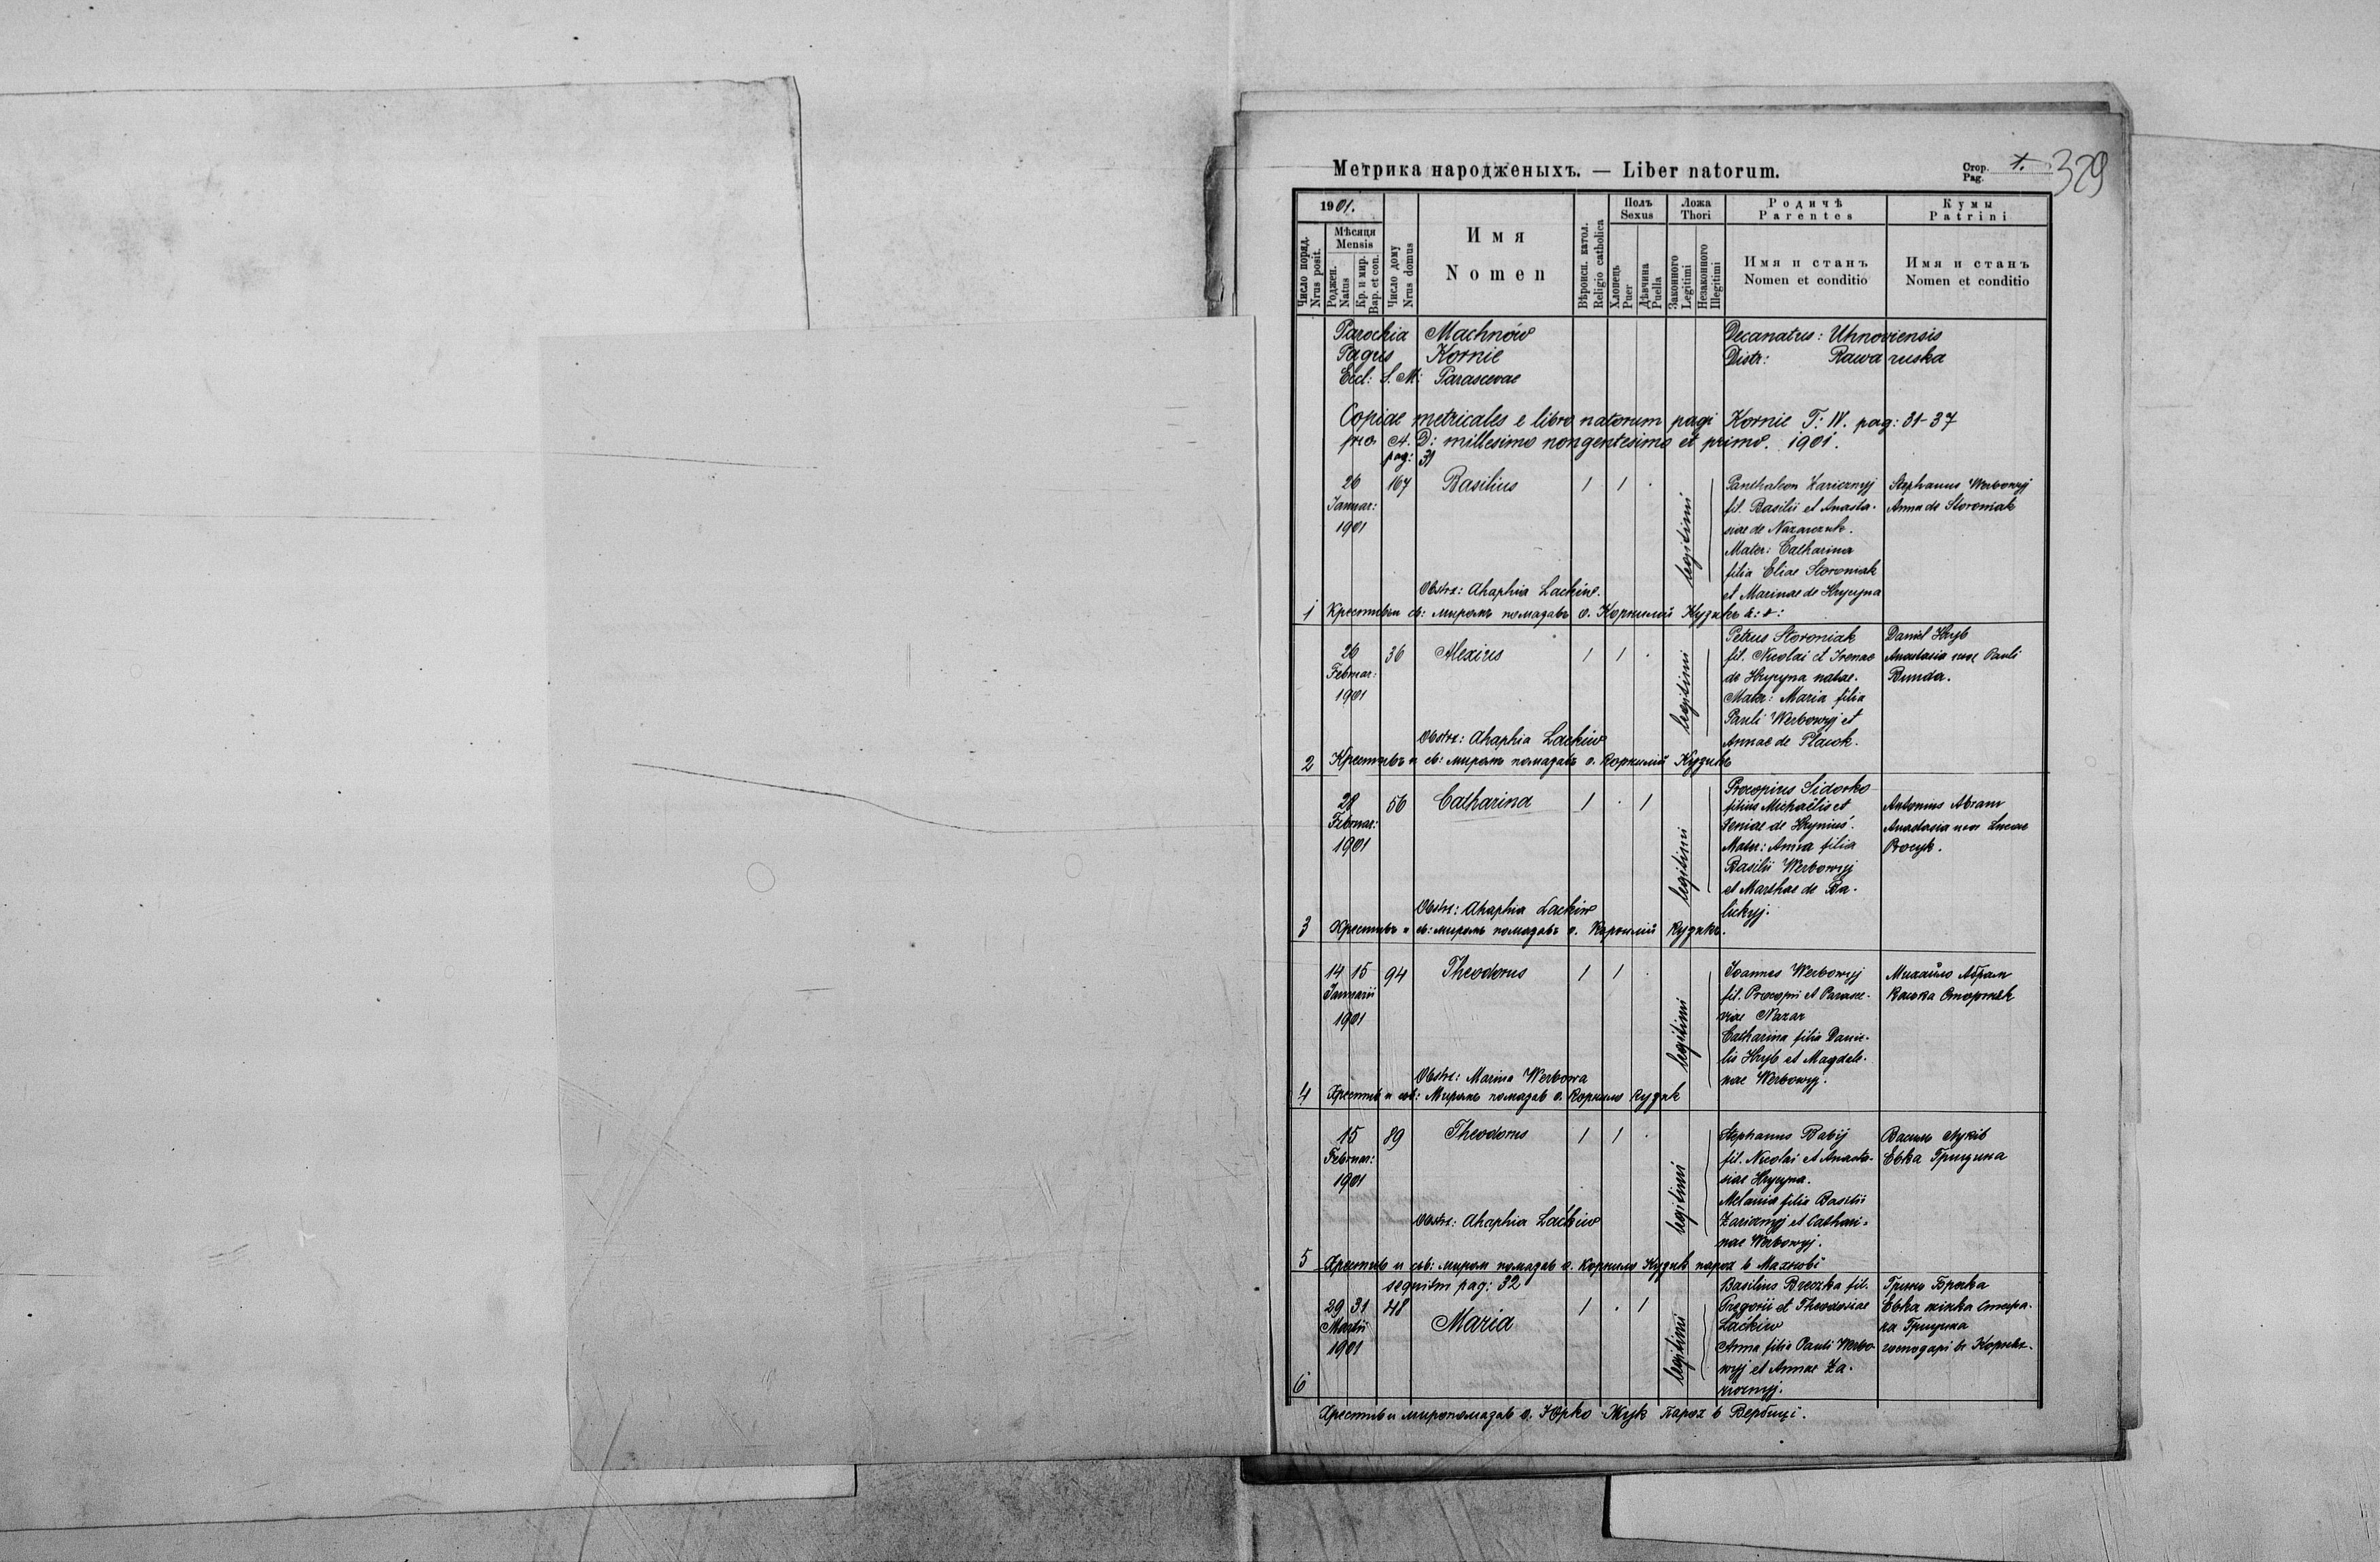 Метрика народженыхъ. — Liber natorum.
Стор. Pag. 1. 329
1901.
Число поряд. Nrus posit.
Мѣсяця Mensis
Роджен. Natus
Кр. и мир. Bap. et con.
Число дому Nrus domus
Имя
Nomen
Вѣроисп. катол. Religio catholica
Полъ Sexus
Хлопець Puer
Дѣвчина Puella
Ложа Thori
Законного Legitimi
Незаконного Illegitimi
Родичѣ
Parentes
Имя и станъ
Nomen et conditio
Кумы
Patrini
Имя и станъ
Nomen et conditio
Parochia Machnów Decanatus: Uhnoviensis
Pagus Kornie Distr: Rawa ruska
Eccl: S. M: Parascevae
Copiae metricales e libro natorum pagi Kornie T: IV. pag: 31-37
pro A. D: millesimo nongentesimo et primo. 1901.
pag: 31
26 167 Basilius 1 1 .
Januar:
1901
legitimi
Panthaleon Zaricznyj
fil. Basilii et Anasta-
siae de Nazarczuk.
Mater: Catharina
filia Eliae Storoniak
et Marinae de Hrycyna
Stephanus Werbowyj
Anna de Storoniak
Obstr: Ahaphia Lackiw.
1 Крестивъ и св: миромъ помазавъ о. Корнилій Кузикъ
26 36 Alexius 1 1 .
Februar:
1901
legitimi
Petrus Storoniak
fil. Nicolai et Irenae
de Hrycyna natae.
Mater: Maria filia
Pauli Werbowyj et
Annae de Placok.
Daniel Hryb
Anastasia uxor Pauli
Bunda.
Obstr: Ahaphia Lackiw
2 Крестивъ и св: миромъ помазавъ о. Корнилій Кузикъ
28 56 Catharina 1 . 1
Februar:
1901
legitimi
Procopius Sidorko
filius Michaëlis et
Xeniae de Hryniuś.
Mater: Anna filia
Basilii Werbowyj
et Marthae de Ba-
lickyj.
Antonius Abram
Anastasia uxor Lucae
Procyk.
Obstr: Ahaphia Lackiw
3 Хрестивъ и св: миромъ помазавъ о. Корнилій Кузикъ.
14 15 94 Theodorus 1 1 .
Januarii
1901
legitimi
Joannes Werbowyj
fil. Procopii et Parasce-
viae Nazar
Catharina filia Danie-
lis Hryb et Magdale-
nae Werbowyj.
Михайло Абрам
Каська
Obstr: Marina Werbowa
4 Хрестив и св: Миром помазав о. Корнило Кузик
15 89 Theodorus 1 1 .
Februar:
1901
legitimi
Stephanus Babij
fil. Nicolai et Anasta-
siae Hrycyna.
Melania filia Basilii
Zaricznyj et Cathari-
nae Werbowyj.
Василь Луків
Евка Грицина
Obstr: Ahaphia Lackiw
5 Хрестив и св: миром помазав о. Корнило Кузик парох в Махнові
sequitur pag: 32
29 31 48 Maria 1 . 1
Martii
1901
legitimi
Basilius Breczka fil.
Gregorii et Theodosiae
Lackiw
Anna filia Pauli Werbo-
wyj et Annae Za-
ricznyj.
Гринь Бречка
Евка жінка
Грицина
господарі в
6
Хрестив и миропомазав о. Юрко Жук парох в Вербиці.